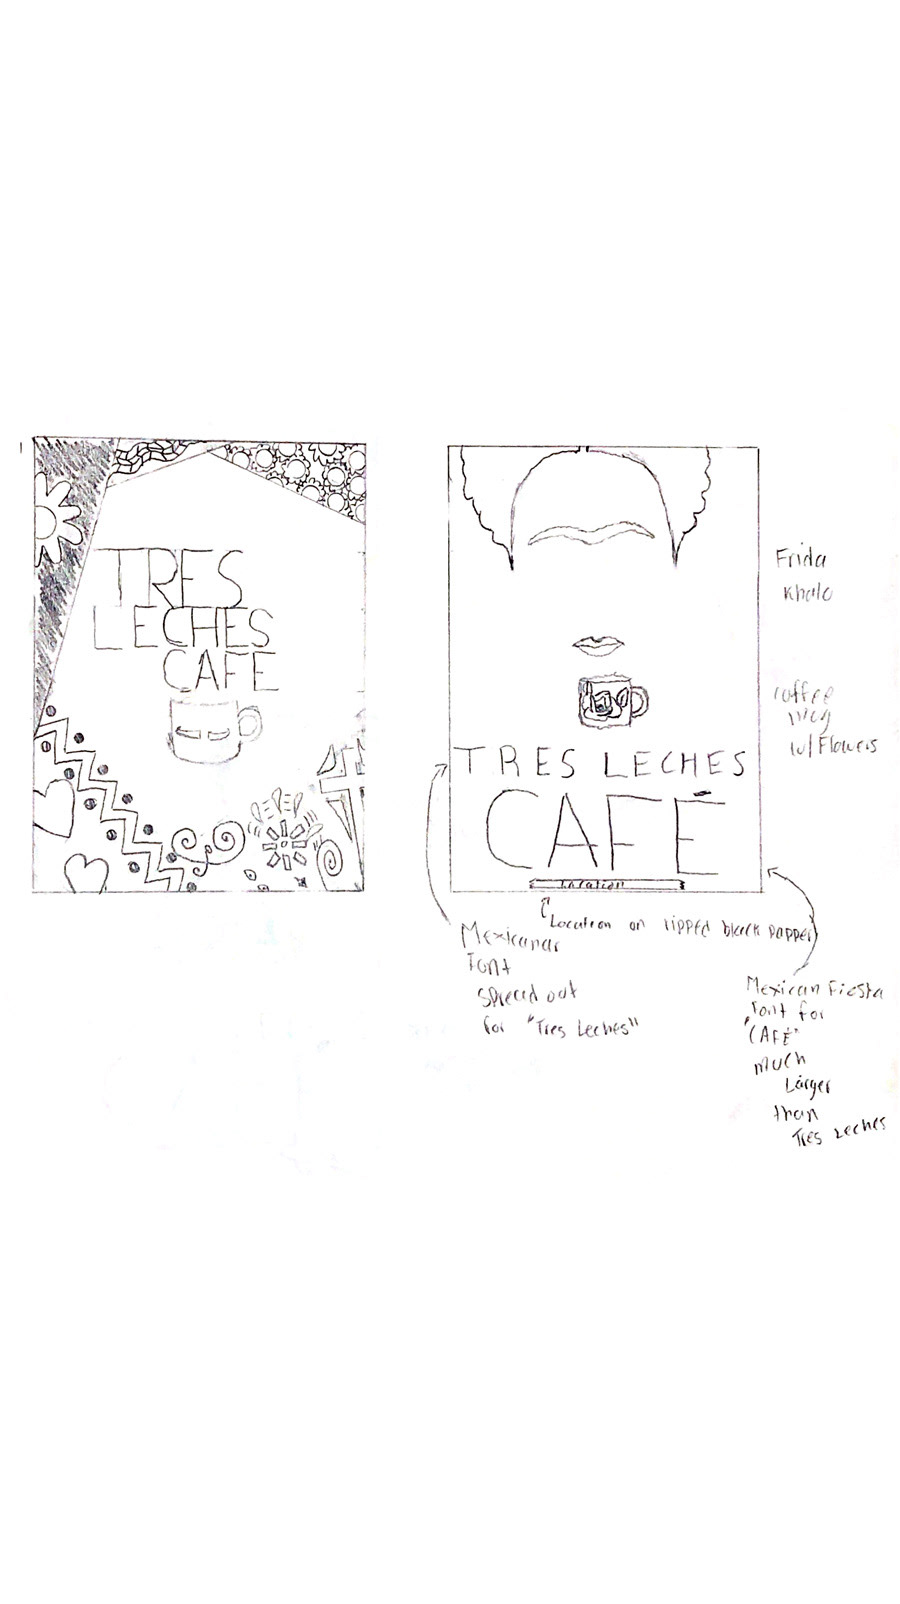 TRES
LECHES
CAFE
Frida
Khalo
coffee
mug
w/Flowers
TRES LECHES
CAFÉ
Location
Location on ripped black papper
Mexicanar
Font
spread out
for "Tres Leches"
Mexican Fiesta
font for
"CAFÉ"
much
Larger
than
Tres Leches